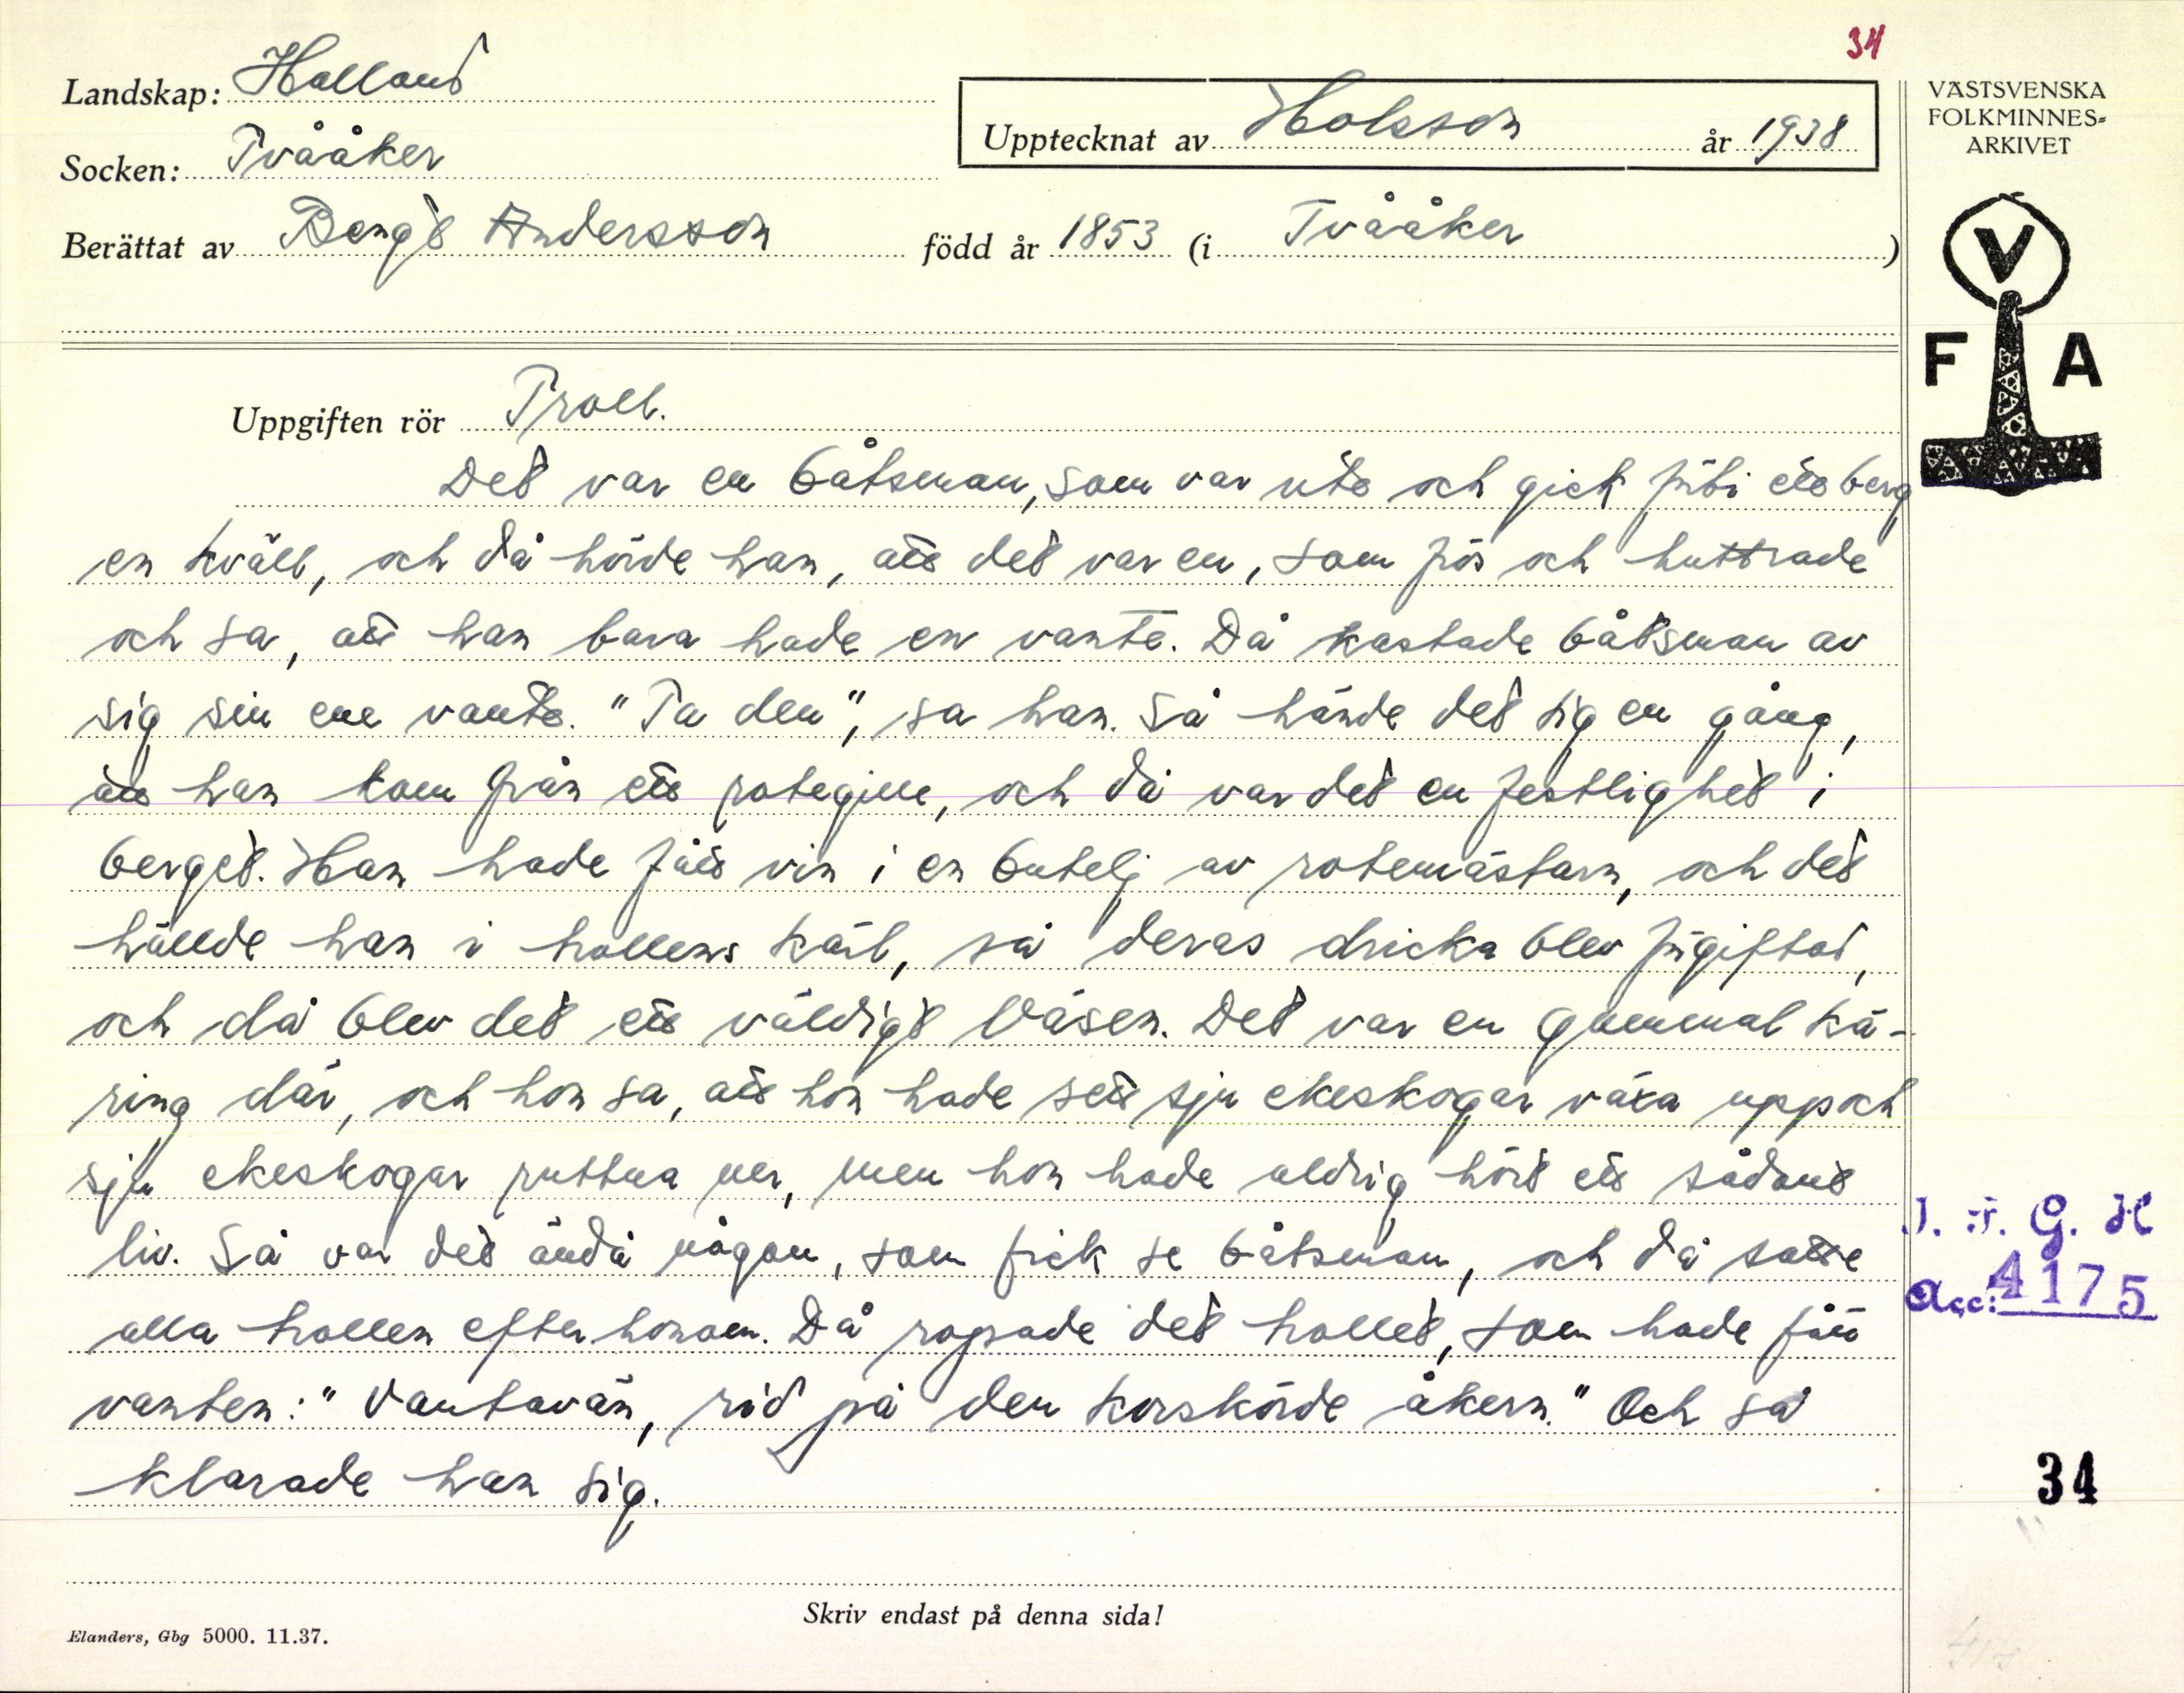 34
Landskap: Halland
Upptecknat av Holsson år 1938
VÄSTSVENSKA
FOLKMINNES-
ARKIVET
Socken: Tvååker
Berättat av Bengt Andersson född år 1853 (i Tvååker)
V
F A
Uppgiften rör Troll.
Det var en båtsman, som var ute och gick förbi ett berg
en kväll, och då hörde han, att det var en, som frös och huttrade
och sa, att han bara hade en vante. Då kastade båtsman av
sig sin ene vante. "Ta den", sa han. Så hände det sig en gång,
att han kom från ett rotegille, och då var det en festlighet i
berget. Han hade fått vin i en butelj av rotemästarn, och det
hällde han i trollens kärl, så deras dricka blev förgiftad,
och då blev det ett väldigt väsen. Det var en gammal kä-
ring där, och hon sa, att hon hade sett sju ekeskogar växa upp och
sju ekeskogar ruttna ner, men hon hade aldrig hört ett sådant
liv. Så var det ändå någon, som fick se båtsman, och då satte
alla trollen efter honom. Då ropade det trollet, som hade fått
vanten: "Vantavän, rid på den korskörde åkern." Och så
klarade han sig.
I. F. G. H
Acc: 4175
34
Skriv endast på denna sida!
Elanders, Gbg 5000. 11.37.